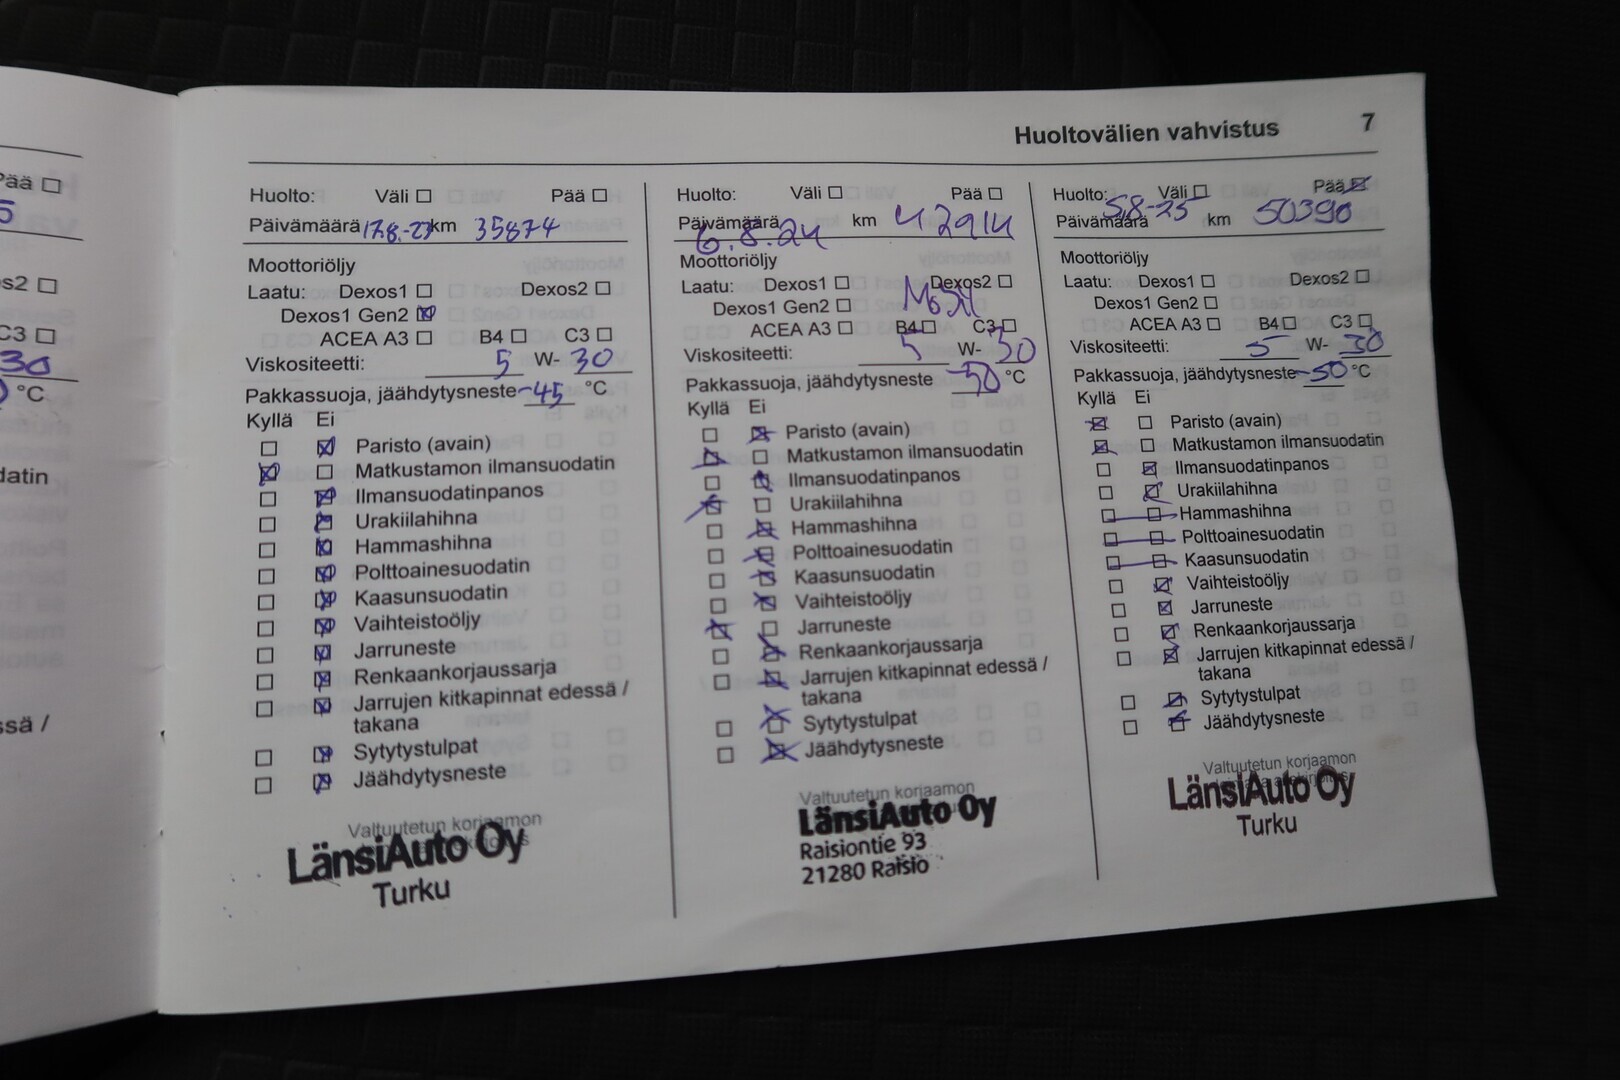 Pää ☐
5
s2 ☐
C3 ☐
30
°C
datin
ssä /
Huoltovälien vahvistus 7
Huolto: Väli ☐ Pää ☐
Päivämäärä 17.8.-23 km 35874
Moottoriöljy
Laatu: Dexos1 ☐ Dexos2 ☐
Dexos1 Gen2 ☒
ACEA A3 ☐ B4 ☐ C3 ☐
Viskositeetti: 5 W- 30
Pakkassuoja, jäähdytysneste -45 °C
Kyllä Ei
☐ ☒ Paristo (avain)
☒ ☐ Matkustamon ilmansuodatin
☐ ☒ Ilmansuodatinpanos
☐ ☒ Urakiilahihna
☐ ☒ Hammashihna
☐ ☒ Polttoainesuodatin
☐ ☒ Kaasunsuodatin
☐ ☒ Vaihteistoöljy
☐ ☒ Jarruneste
☐ ☒ Renkaankorjaussarja
☐ ☒ Jarrujen kitkapinnat edessä /
takana
☐ ☒ Sytytystulpat
☐ ☒ Jäähdytysneste
Valtuutetun korjaamon
LänsiAuto Oy
Turku
Huolto: Väli ☐ Pää ☐
Päivämäärä 6.8.24 km 42914
Moottoriöljy
Laatu: Dexos1 ☐ Dexos2 ☐
Dexos1 Gen2 ☐
ACEA A3 ☐ B4 ☐ C3 ☐
Viskositeetti: 5 W- 30
Pakkassuoja, jäähdytysneste -50 °C
Kyllä Ei
☐ ☒ Paristo (avain)
☒ ☐ Matkustamon ilmansuodatin
☐ ☒ Ilmansuodatinpanos
☒ ☐ Urakiilahihna
☐ ☒ Hammashihna
☐ ☒ Polttoainesuodatin
☐ ☒ Kaasunsuodatin
☐ ☒ Vaihteistoöljy
☒ ☐ Jarruneste
☐ ☒ Renkaankorjaussarja
☐ ☒ Jarrujen kitkapinnat edessä /
takana
☐ ☒ Sytytystulpat
☐ ☒ Jäähdytysneste
Valtuutetun korjaamon
LänsiAuto Oy
Raisiontie 93
21280 Raisio
Huolto: Väli ☐ Pää ☒
Päivämäärä 5.8-25 km 50390
Moottoriöljy
Laatu: Dexos1 ☐ Dexos2 ☐
Dexos1 Gen2 ☐
ACEA A3 ☐ B4 ☐ C3 ☐
Viskositeetti: 5 W- 30
Pakkassuoja, jäähdytysneste -50 °C
Kyllä Ei
☒ ☐ Paristo (avain)
☒ ☐ Matkustamon ilmansuodatin
☐ ☒ Ilmansuodatinpanos
☐ ☒ Urakiilahihna
☐ ☐ Hammashihna
☐ ☐ Polttoainesuodatin
☐ ☐ Kaasunsuodatin
☐ ☒ Vaihteistoöljy
☐ ☒ Jarruneste
☐ ☒ Renkaankorjaussarja
☐ ☒ Jarrujen kitkapinnat edessä /
takana
☐ ☒ Sytytystulpat
☐ ☒ Jäähdytysneste
Valtuutetun korjaamon
LänsiAuto Oy
Turku